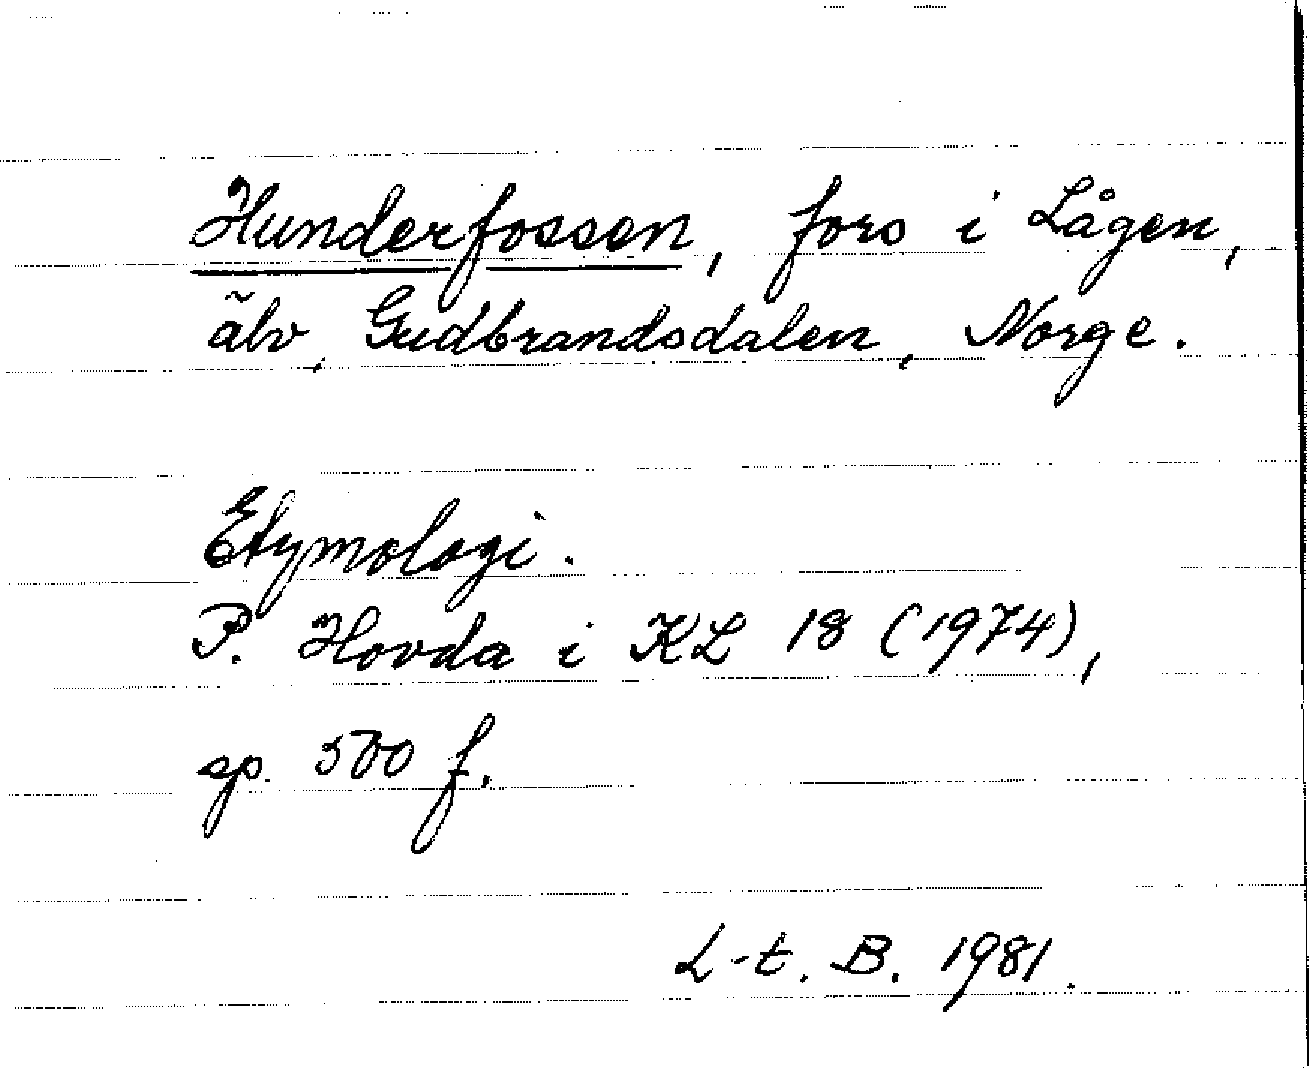 Hunderfossen, fors i Lågen,
älv, Gudbrandsdalen, Norge.
Etymologi.
P. Hovda i KL 18 (1974),
sp. 500 f.
L-t. B. 1981.